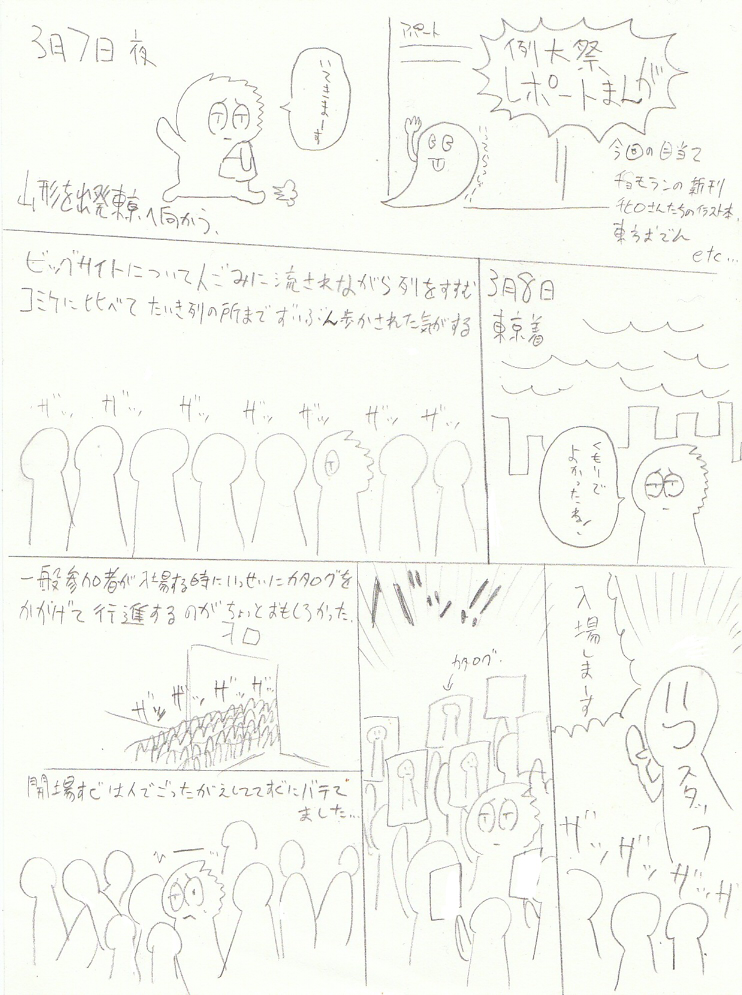 例大祭
レポートまんが
アパート
いってらっしゃーい
今回の目当て
チョモランの新刊
東方おでん
etc...
3月7日 夜
いてきまーす
山形を出発東京へ向かう.
3月8日
東京着
くもりで
よかったね!
ビッグサイトについて人ごみに流されながら列をすすむ
コミケに比べてたいき列の所までずいぶん歩かされた気がする
ザッ ザッ ザッ ザッ ザッ ザッ ザッ
入場しまーす
スタッフ
ザッ ザッ ザッ ザッ
バッ!!
カタログ
一般参加者が入場する時にいっせいにカタログを
かかげて行進するのがちょっとおもしろかった.
ザッ ザッ ザッ ザッ
開場すぐは人でごったがえしててすぐにバテて
ました...